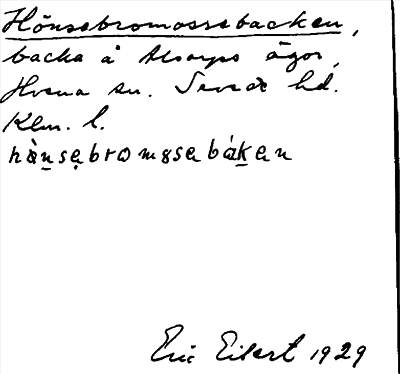 Hönsebromossebacken,
backa å Alsarps ägor,
Hvena sn. Sevede hd.
Klm. l.
hɑ̀n̠sẹbromɞsebák̠en
Eric Eilert 1929